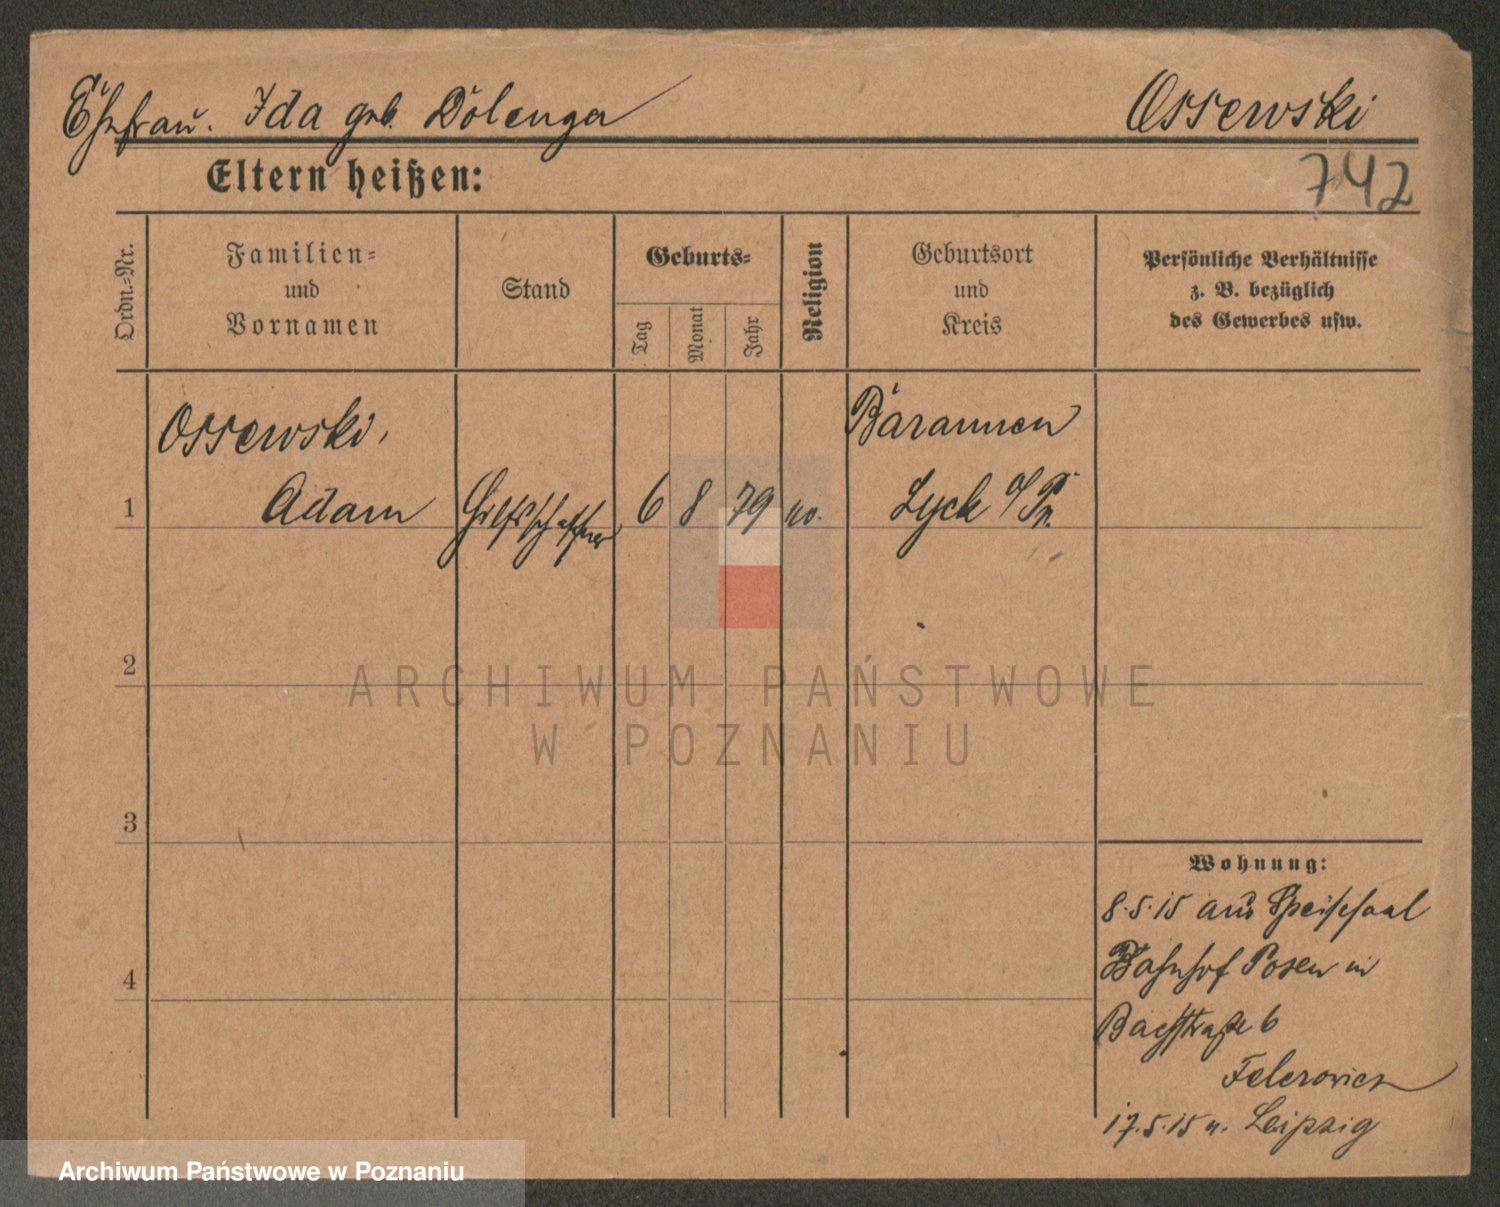 Ehefrau. Ida geb. Dolenga Ossewski
742
Eltern heißen:
Ordn.-Nr.
Familien=
und
Vornamen
Stand
Geburts=
Tag
Monat
Jahr
Religion
Geburtsort
und
Kreis
Persönliche Verhältnisse
z. B. bezüglich
des Gewerbes usw.
Ossewski,
Barannen
1 Adam Hilfsschaffner 6 8 79 ev. Lyck o/Pr.
2
3
4
ARCHIWUM PAŃSTWOWE
W POZNANIU
Wohnung:
8.5.15 aus Speisesaal
Bahnhof Posen in
Bachstraße 6
17.5.15 n. Leipzig
Archiwum Państwowe w Poznaniu